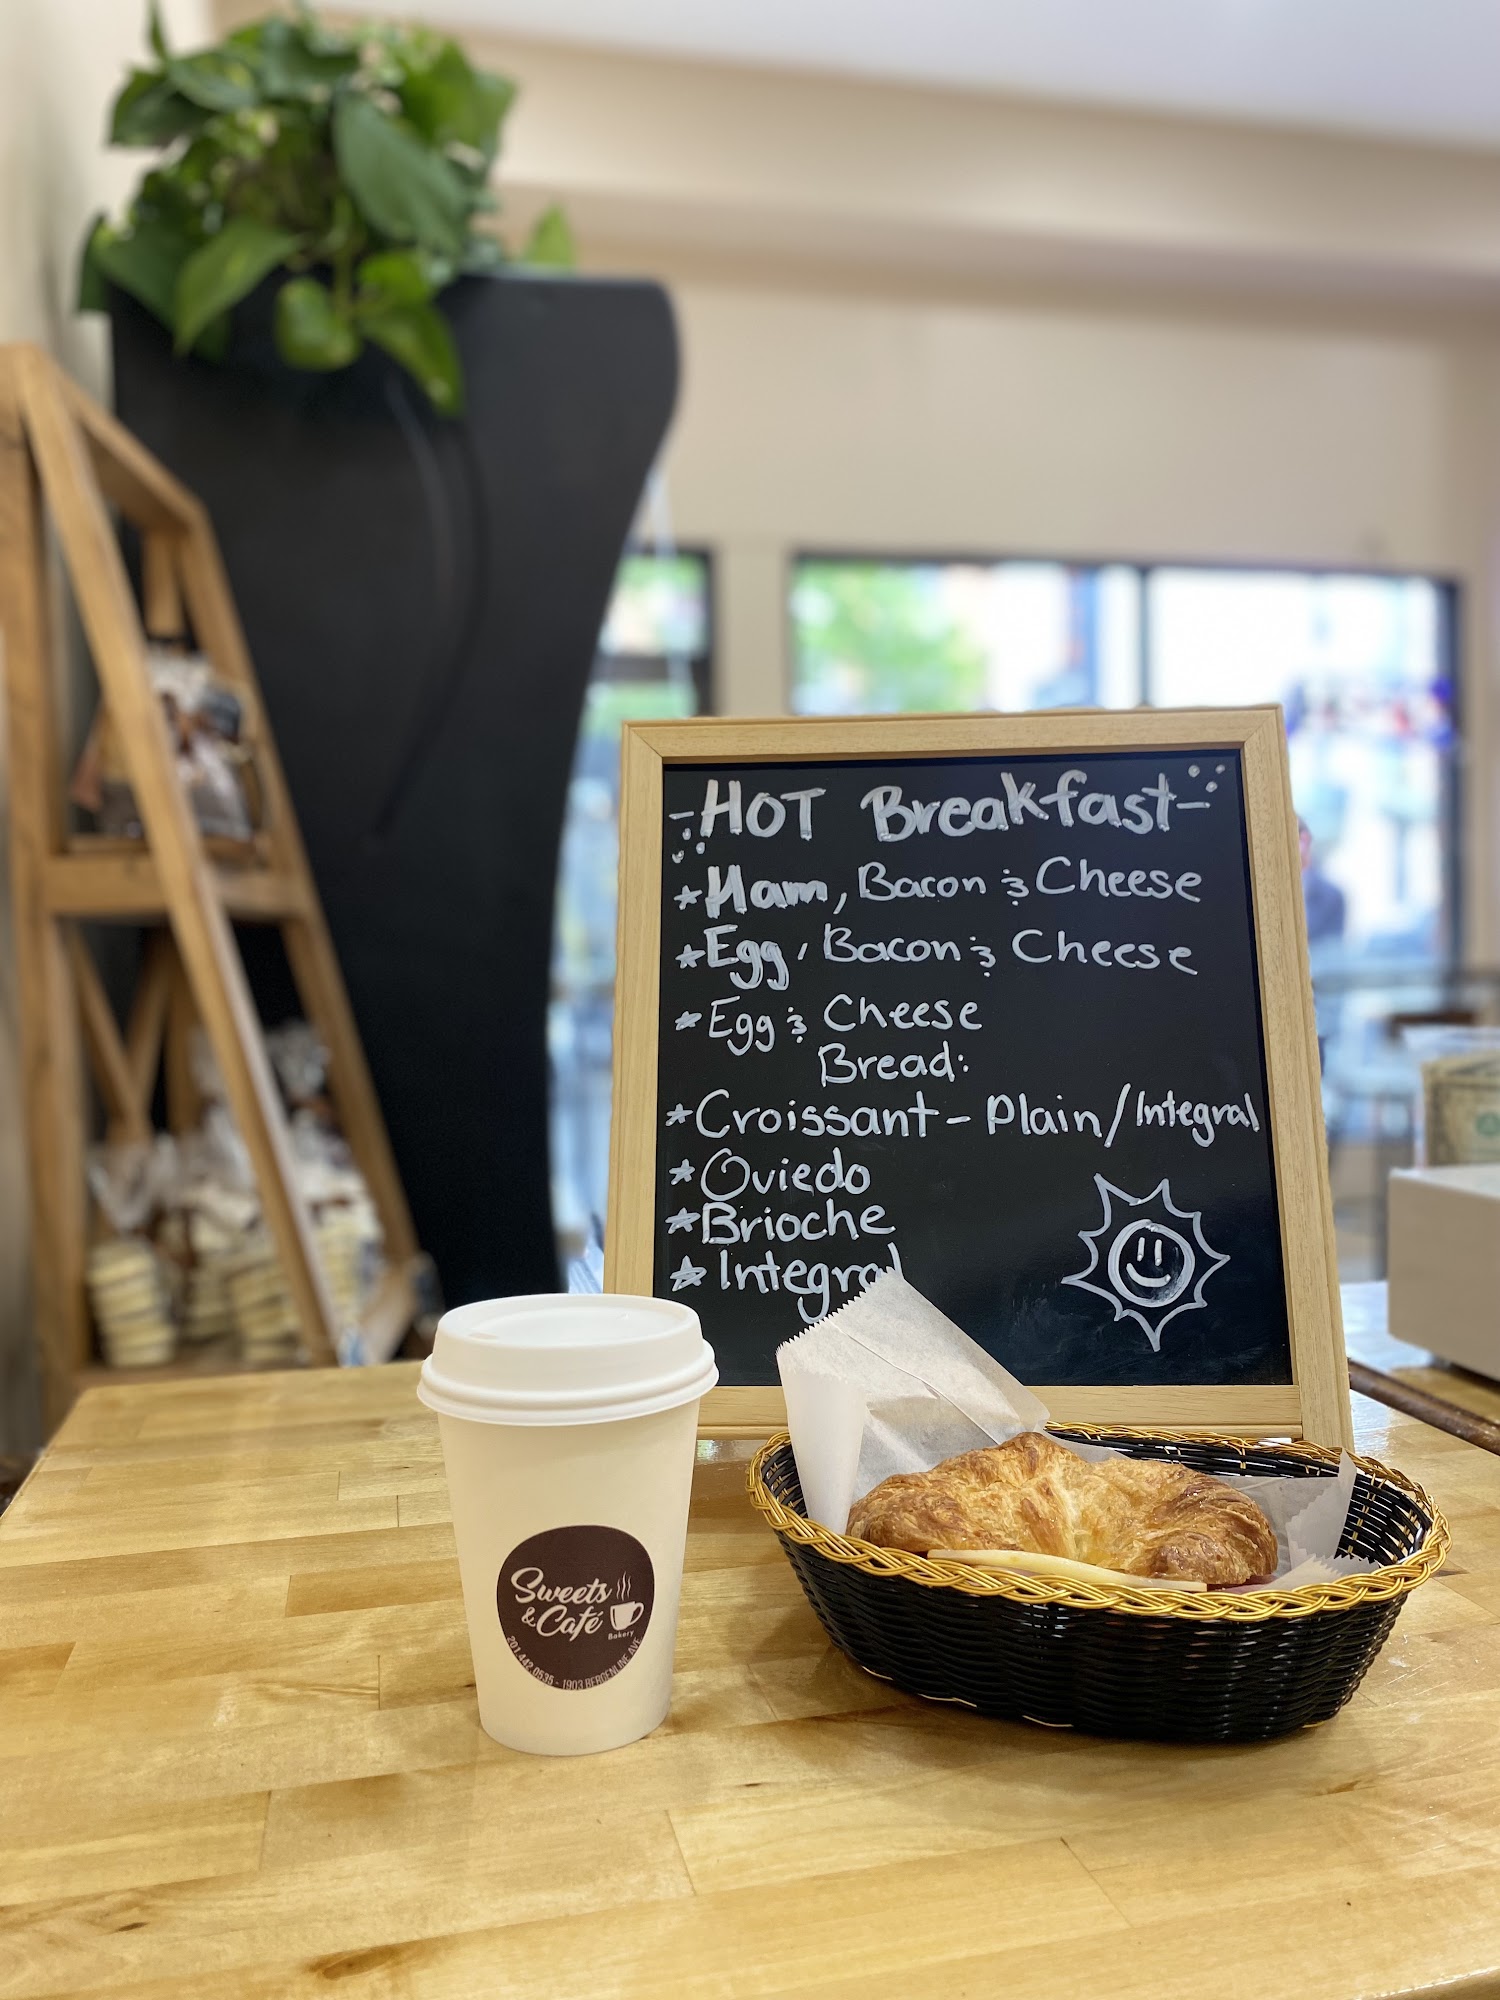 -HOT Breakfast-
*Ham, Bacon & Cheese
*Egg, Bacon & Cheese
*Egg & Cheese
Bread:
*Croissant - Plain/Integral
*Oviedo
*Brioche
*Integral
Sweets
& Café
Bakery
201.442.0535 - 1903 BERGENLINE AVE